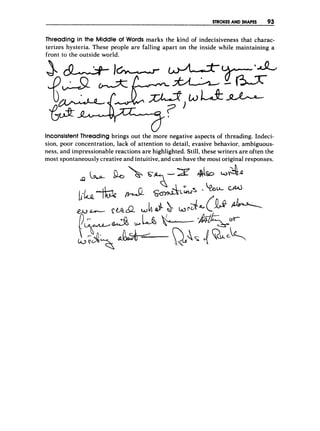 STROKES AND SHAPES 93
Threading in the Middle of Words marks the kind of indecisiveness that charac-
terizes hysteria. These people are falling apart on the inside while maintaining a
front to the outside world.
I don't know what
find out from this - But
from that, what else
But everything?
Inconsistent Threading brings out the more negative aspects of threading. Indeci-
sion, poor concentration, lack of attention to detail, evasive behavior, ambiguous-
ness, and impressionable reactions are highlighted. Still, these writers are often the
most spontaneously creative and intuitive, and can have the most original responses.
Do I say - I Also write
like this sometimes. You can
even read what I write (let alone
or
writing about Lots of Luck